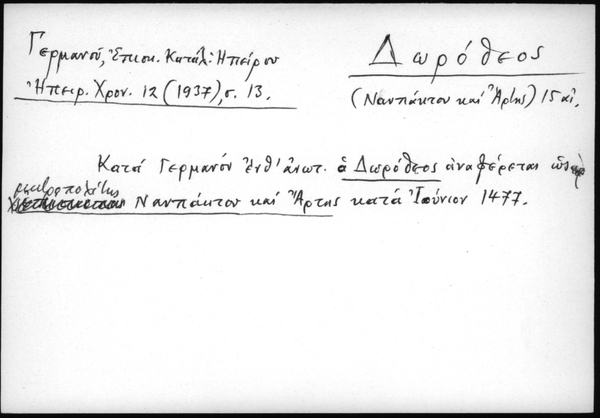 Γερμανού, Ἐπισκ. Κατάλ. Ἠπείρου
Ἠπειρ. Χρον. 12 (1937), σ. 13.
Δωρόθεος
(Ναυπάκτου καὶ Ἄρτης) 15 αἰ.
Κατά Γερμανόν ἔνθ' ἀνωτ. ὁ Δωρόθεος ἀναφέρεται ὡς
μητροπολίτης Ναυπάκτου καὶ Ἄρτης κατά Ἰούνιον 1477.